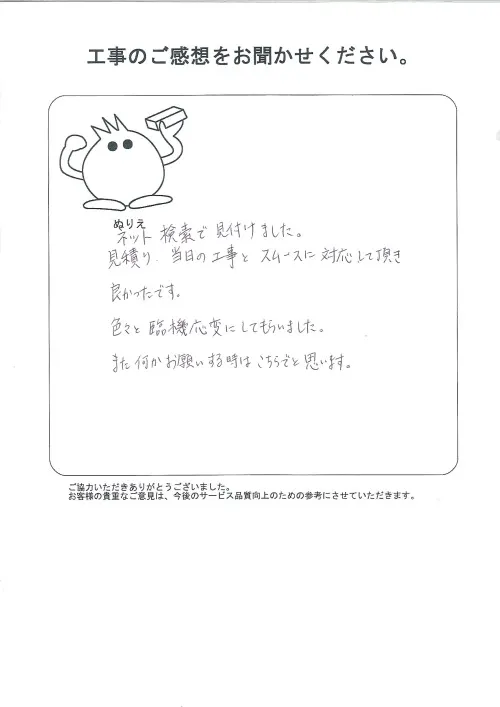 工事のご感想をお聞かせください。
ぬりえ
ネット検索で見付けました。
見積り、当日の工事と スムースに対応して頂き
良かったです。
色々と臨機応変にしてもらいました。
また何かお願いする時はこちらでと思います。
ご協力いただきありがとうございました。
お客様の貴重なご意見は、今後のサービス品質向上のための参考にさせていただきます。